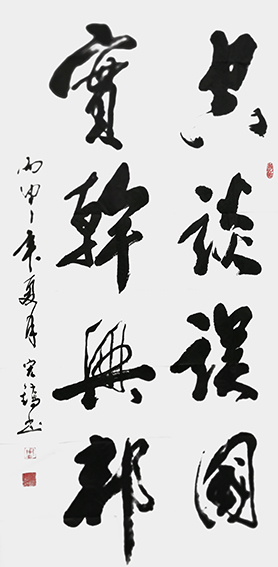 空談誤國
實幹興邦
丙申年夏月書